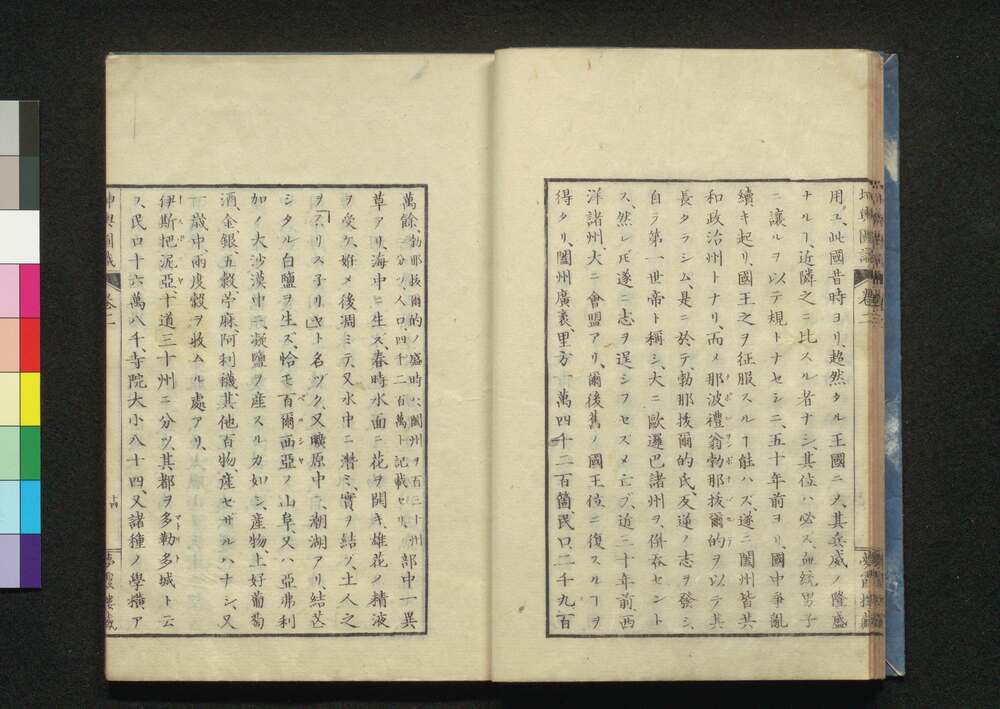 用ユ、此國昔時ヨリ、超然タル王國ニメ、其兵威ノ隆盛
ナルヿ、近隣之ニ比スル者ナシ、其位ハ必ス血統男子
ニ讓ルヲ以テ規トナセシニ、五十年前ヨリ、國中爭亂
續キ起リ、國王之ヲ征服スルヿ能ハズ、遂ニ闔州皆共
和政治州トナリ、而メ那波禮翁勃那拔爾的ヲ以テ其
長タラシム、是ニ於テ、勃那拔爾的氏、反逆ノ志ヲ發シ、
自ラ第一世帝ト稱シ、大ニ歐邏巴諸州ヲ、併呑セント
ス、然レ𪜈遂ニ志ヲ逞シフセズメ亡ブ、近三十年前、西
洋諸州、大ニ會盟アリ、爾後舊ノ國王位ニ復スルヿヲ
得タリ、闔州廣袤里方一萬四千二百箇、民口二千九百
坤輿圖識
卷二
夢霞樓藏
萬餘、勃那拔爾的ノ盛時ハ、闔州ヲ百三十州ニ分ツ、人口四千二百萬ト記載セリ、部中一異
草アリ、海中ニ生ス、春時水面ニ花ヲ開キ、雄花ノ精液
ヲ受ケ、姙メ後凋ミテ、又水中ニ潛ミ、實ヲ結ブ、土人之
ヲ「フリスネリヤト名ヅク、又曠原中ニ、潮湖アリ、結芒
シタル白鹽ヲ生ス、恰モ百爾西亞ノ山阜、又ハ亞弗利
加ノ大沙漠中ニ、凝鹽ヲ産スルカ如シ、産物、上好葡萄
酒、金、銀、五穀、苧麻、阿利襪、其他百物、産セザルハナシ、又
一歳中、兩度穀ヲ收ムル處アリ、
伊斯把泥亞十道三十州ニ分ツ、其都ヲ多勒多城ト云
フ、民口十六萬八千、寺院大小八十四、又諸種ノ學黌ア
坤輿圖識
卷二
十四
夢霞樓藏